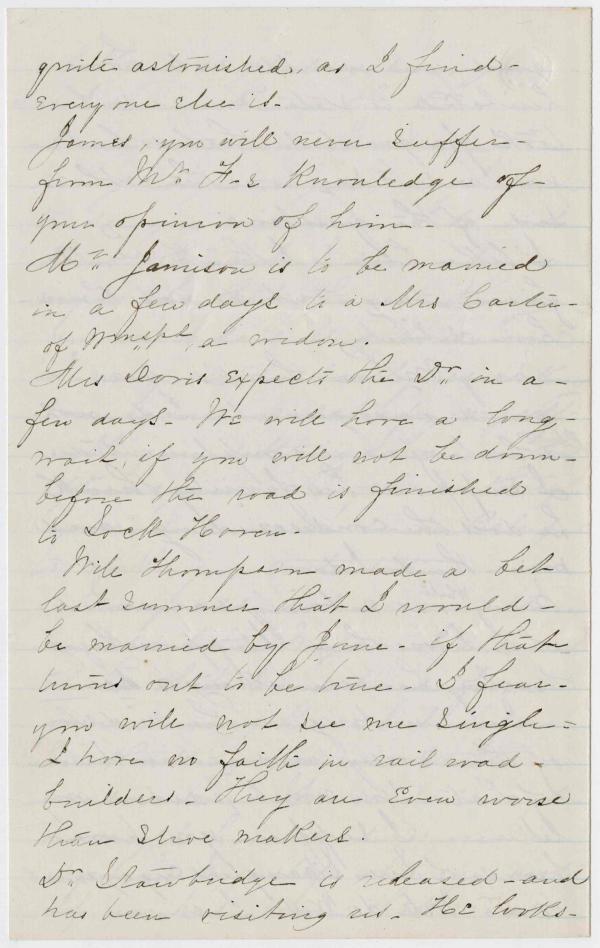 quite astonished, as I find-
every one else is-
James, you will never suffer-
from Mr. F-s Knowledge of-
your opinion of him-
Mr. Jamison is to be married
in a few days to a Mrs Carter-
of Wmspt, a widow.
Mrs Davis expects the Dr. in a-
few days- We will have a long-
wait, if you will not be down-
before the road is finished
to Lock Haven-
Will Thompson made a bet
last summer that I would-
be married by June- if that
turns out to be true- I fear-
you will not see me single-
I have no faith in rail road-
builders- They are even worse
than shoe makers.
Dr. Stawbridge is released-and
has been visiting us- He looks-